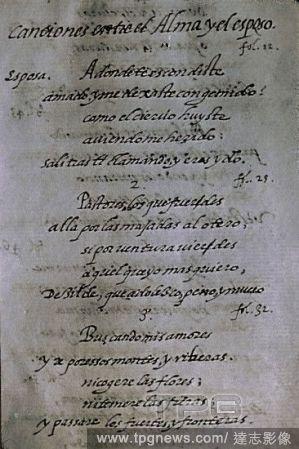 Canciones entre el Alma y el esposo.
fol. 12.
Esposa.
Adonde te escondiste
amado, y me dexaste con gemido?
como el ciervo huyste
aviendome herido:
sali tras ti clamando, y eras ydo.
2 fol. 25.
Pastores, los que fuerdes
alla por las majadas al otero;
si por ventura vierdes
aquel que yo mas quiero,
Decilde, que adolezco, peno, y muero
3. fol. 32.
Buscando mis amores
yre por essos montes, y riberas.
ni cogere las flores;
ni temere las fieras;
y passare los fuertes, y fronteras.
TPG
www.tpgnews.com/ 達志影像